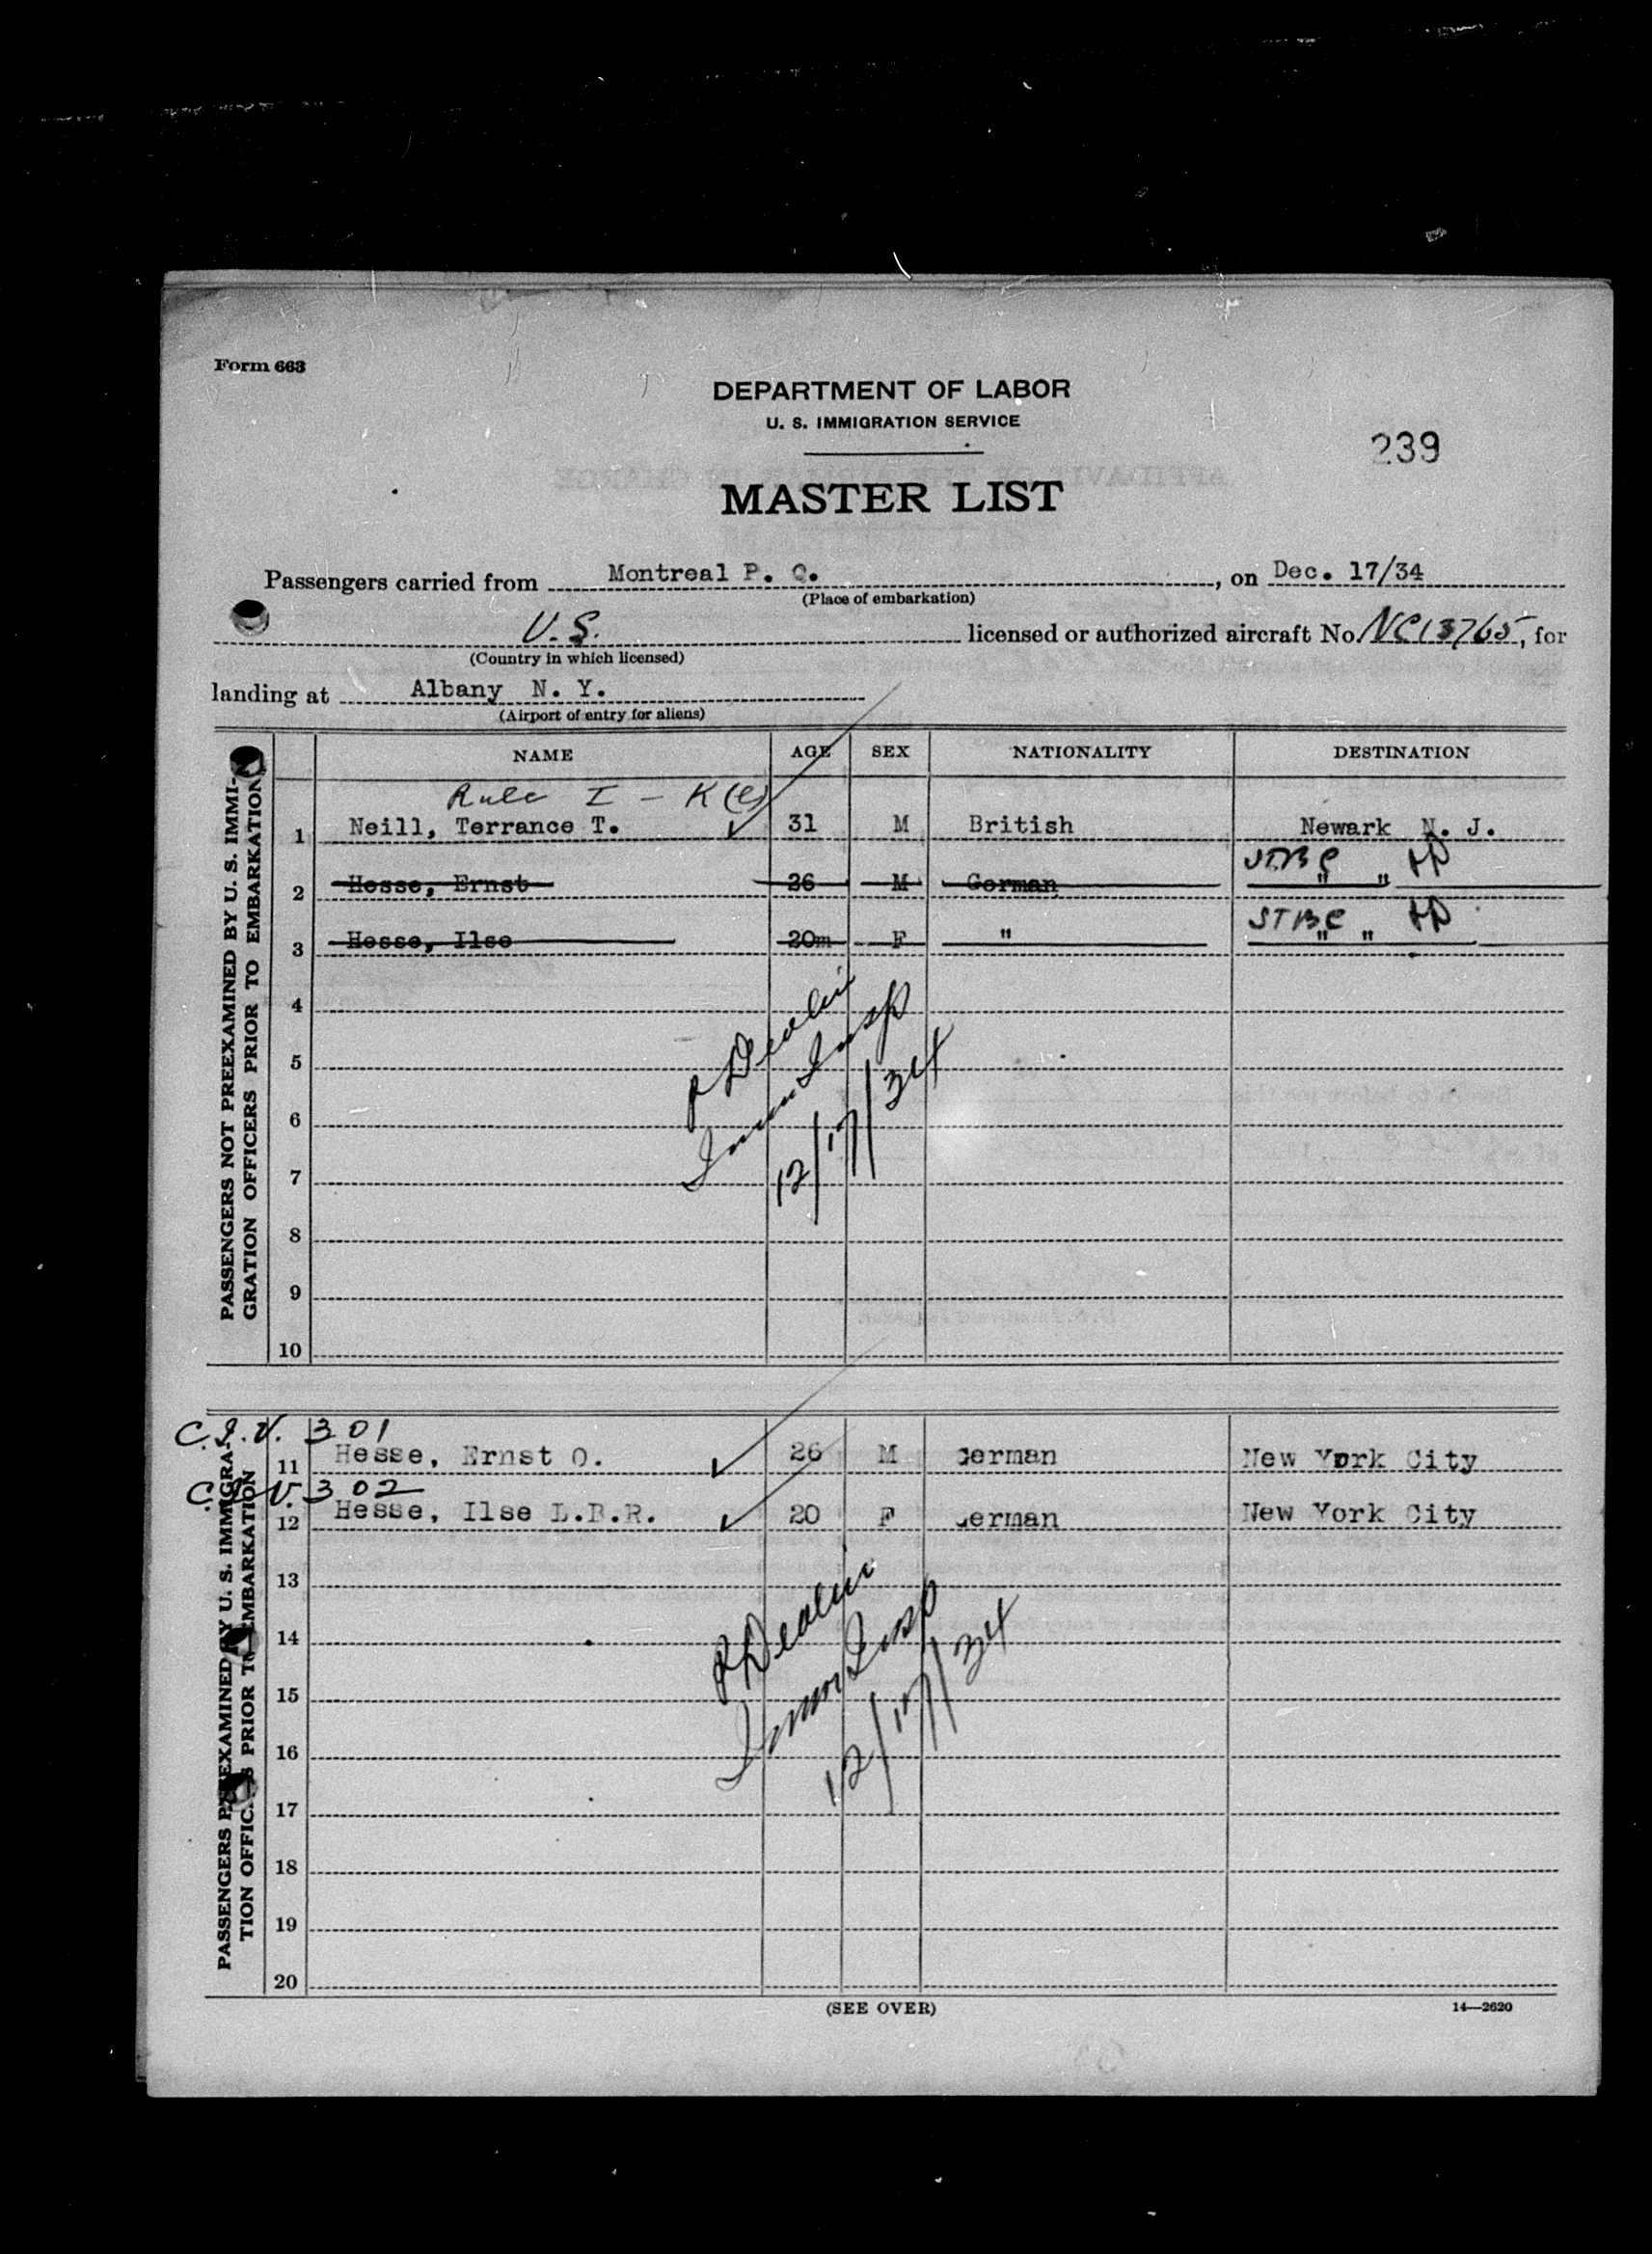 Form 663
DEPARTMENT OF LABOR
U. S. IMMIGRATION SERVICE
239
MASTER LIST
Passengers carried from Montreal P. Q., on Dec. 17/34
(Place of embarkation)
U.S. licensed or authorized aircraft No. NC13765, for
(Country in which licensed)
landing at Albany N. Y.
(Airport of entry for aliens)
NAME AGE SEX NATIONALITY DESTINATION
PASSENGERS NOT PREEXAMINED BY U. S. IMMI-
GRATION OFFICERS PRIOR TO EMBARKATION
Rule I - K(e)
1 Neill, Terrance T. 31 M British Newark N. J.
2 Hesse, Ernst 26 M German " "
STBC
3 Hesse, Ilse 20m F " " "
4
5
6
7
8
9
10
P Devlin
Imm Insp
12/17/34
PASSENGERS PREEXAMINED BY U. S. IMMIGRA-
TION OFFICERS PRIOR TO EMBARKATION
C.S.V. 301
11 Hesse, Ernst O. 26 M German New York City
C.S.V. 302
12 Hesse, Ilse L.B.R. 20 F German New York City
13
14
15
16
17
18
19
20
P Devlin
Imm Insp
12/17/34
(SEE OVER)
14—2620